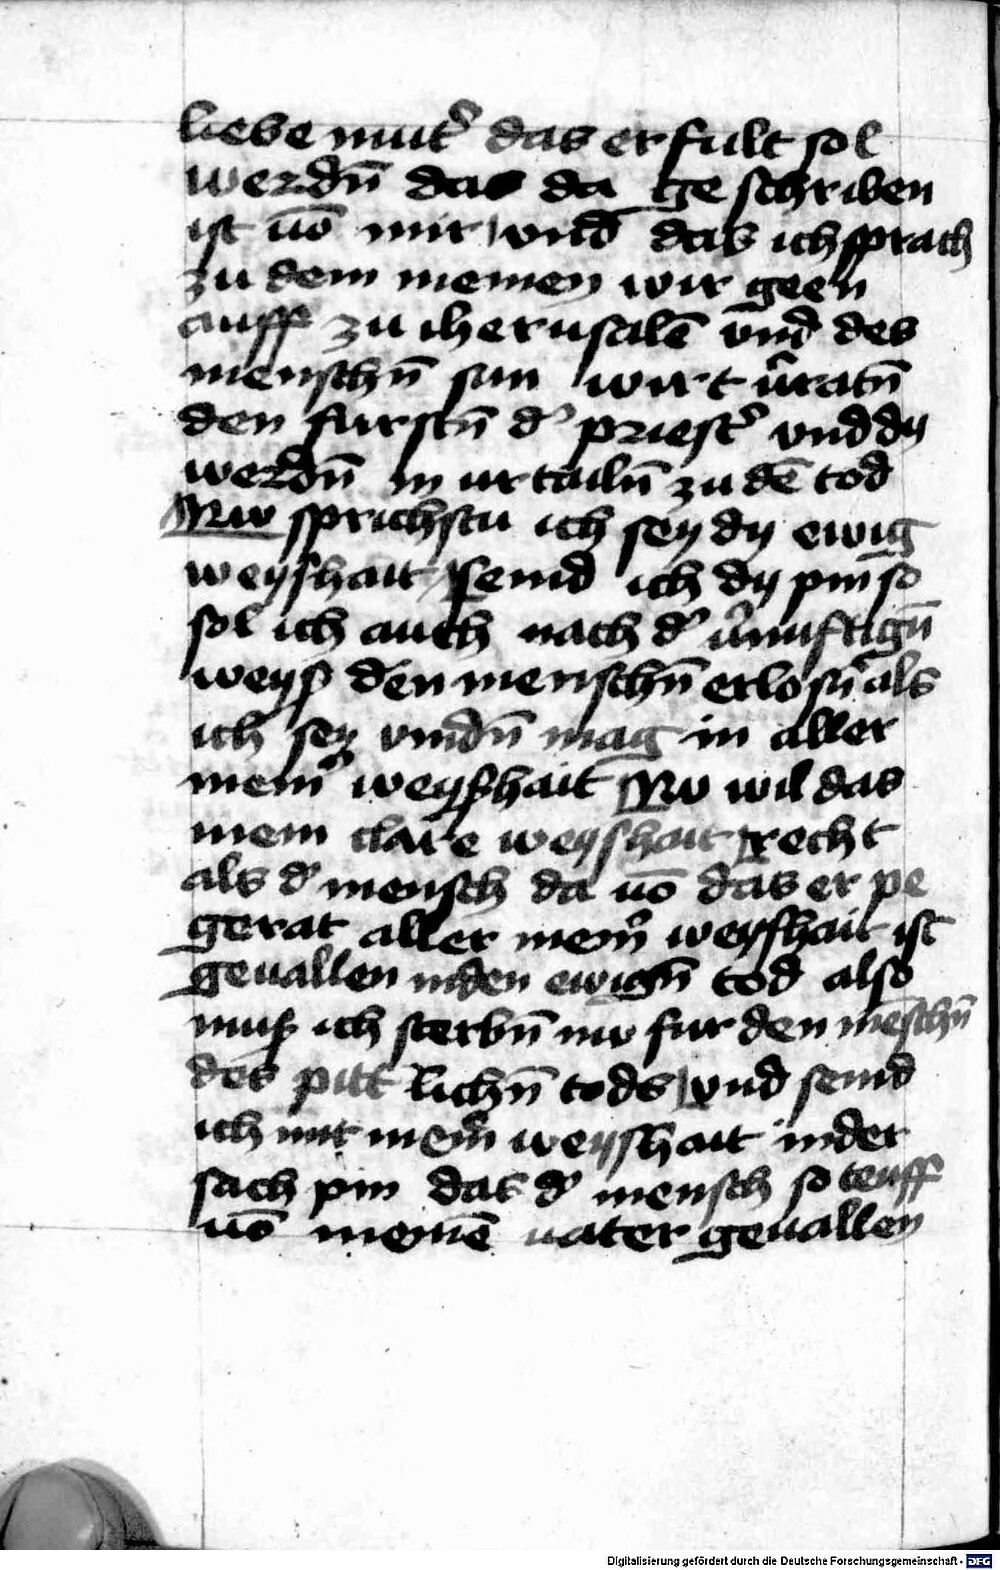 liebe mut᷑ das erfult sol
werdn̄ das da geschriben
ist uō mir vnd das ich sprach
zu dem meinen wir geen
auff zu iherusalē vnd des
menschn̄ sun wirt v᷑ratn̄
den fursten̄ d᷑ priest᷑ vnd dy
werdn̄ in urtailn̄ zu dē tod
Nw sprichstu ich sey dy ewig
weyshait seind ich dy pin so
sol ich auch nach d᷑ v᷑nuftign̄
weyß den menschn̄ erlosn̄ als
ich sey vindn̄ mag in aller
mein᷑ weyßhait Nw wil das
mein clare weyshait recht
als d᷑ mensch da uō das er pe
gerat aller mein᷑ weyshait ist
geuallen in den ewign̄ tod also
muß ich sterbn̄ nw fur den mēschn̄
des pittlichn̄ tods vnd seind
ich mit mein᷑ weyshait in der
sach pin das d᷑ mensch so teuff
uō meinē uater geuallen
Digitalisierung gefördert durch die Deutsche Forschungsgemeinschaft - DFG